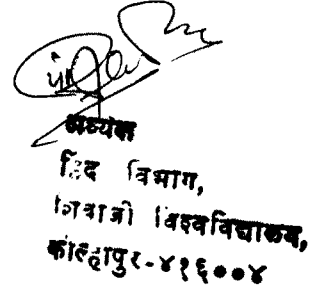 अध्यक्ष
हिंद विभाग,
शिवाजी विश्वविद्यालय,
कोल्हापुर-४१६००४